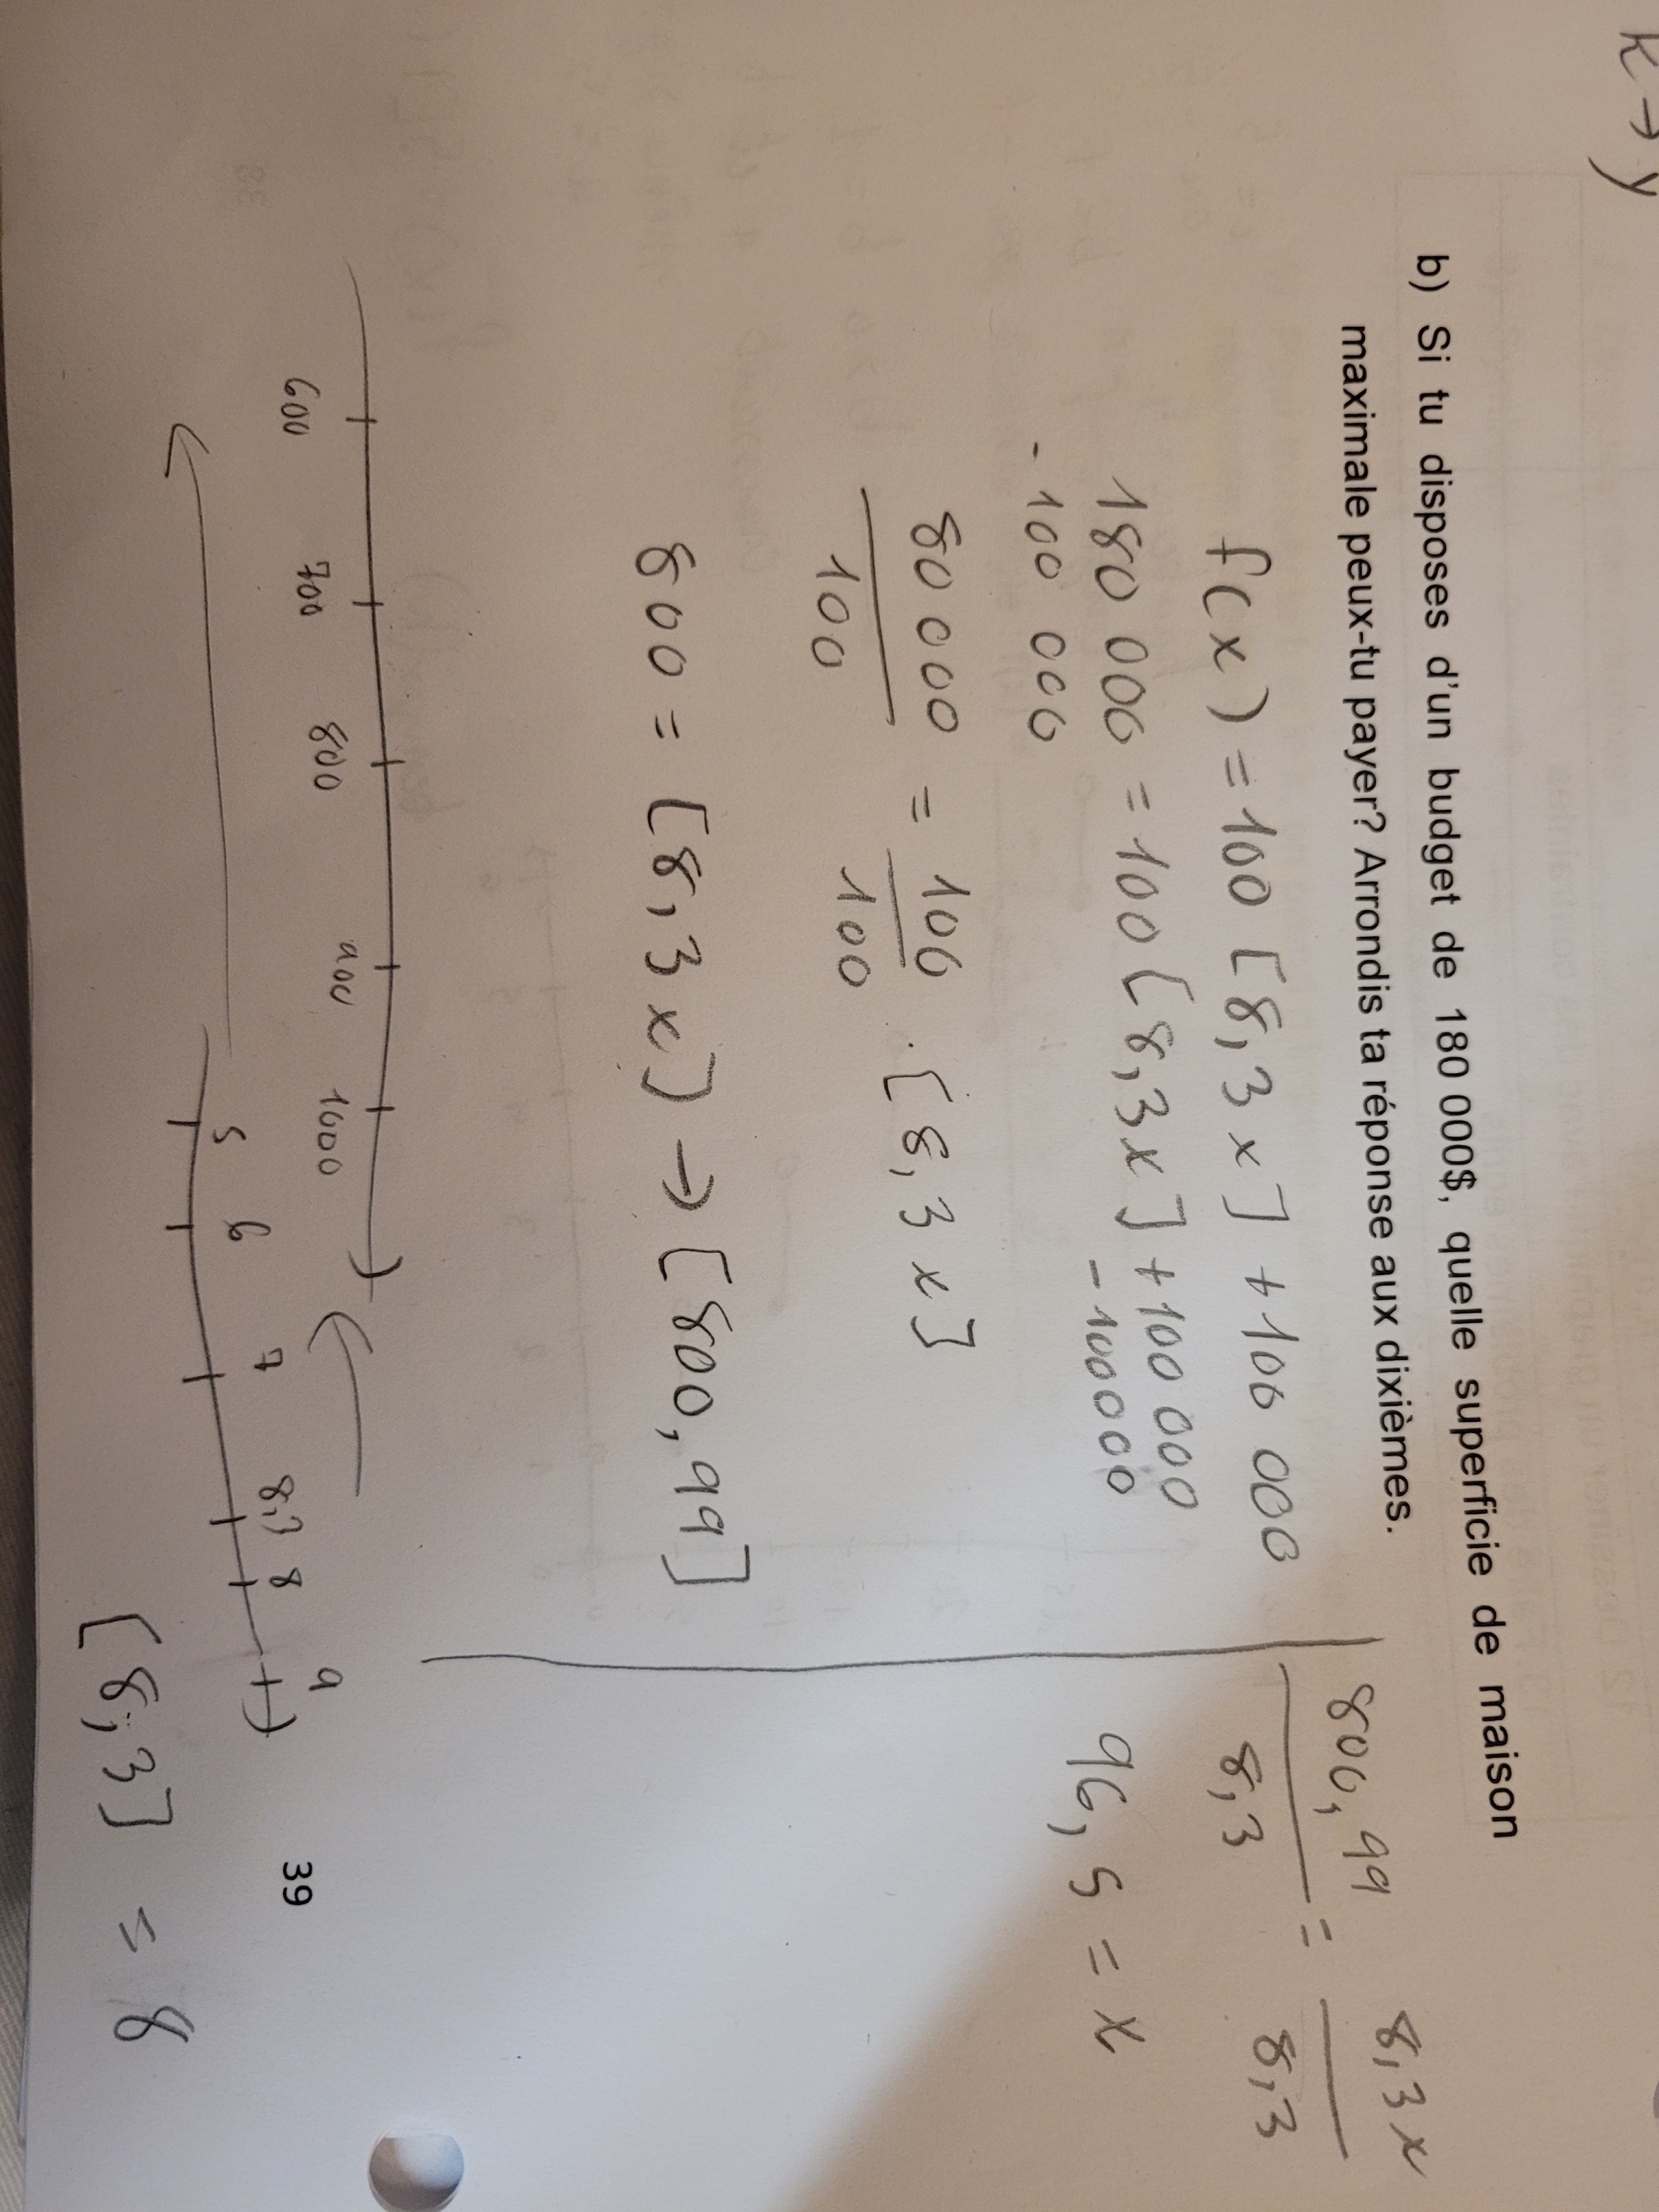 k → y
b) Si tu disposes d'un budget de 180 000$, quelle superficie de maison
maximale peux-tu payer? Arrondis ta réponse aux dixièmes.
f(x) = 100 [8,3x] + 100 000
180 000 = 100 [8,3x] + 100 000
- 100 000 - 100000
80 000 = 100 · [8,3x]
100 100
800 = [8,3x] → [800,99]
800,99 = 8,3x
8,3 8,3
96,5 = x
600 700 800 900 1000
5 6 7 8,3 8 9
39
[8,3] = 8